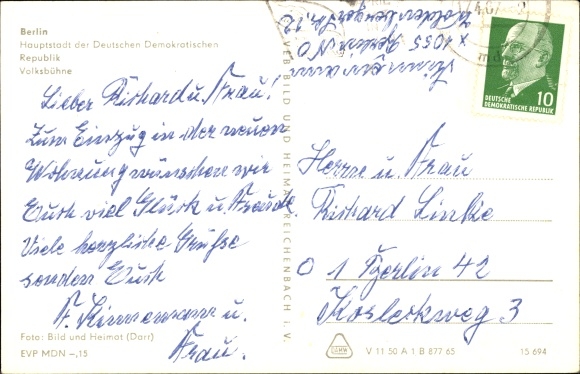 Berlin
Hauptstadt der Deutschen Demokratischen
Republik
Volksbühne
Lieber Richard u. Frau!
Zum Einzug in der neuen
Wohnung wünschen wir
Euch viel Glück u. Freude.
Viele herzliche Grüße
senden Euch
F. Zimmermann u.
Frau.
Foto: Bild und Heimat (Darr)
EVP MDN –,15
VEB BILD UND HEIMAT REICHENBACH I. V.
Zimmermann
x 1055 Berlin NO
DEUTSCHE
DEMOKRATISCHE REPUBLIK
10
Herrn u. Frau
Richard Linke
O 1 Berlin 42
Kosleckweg 3
V 11 50 A 1 B 877 65
15 694